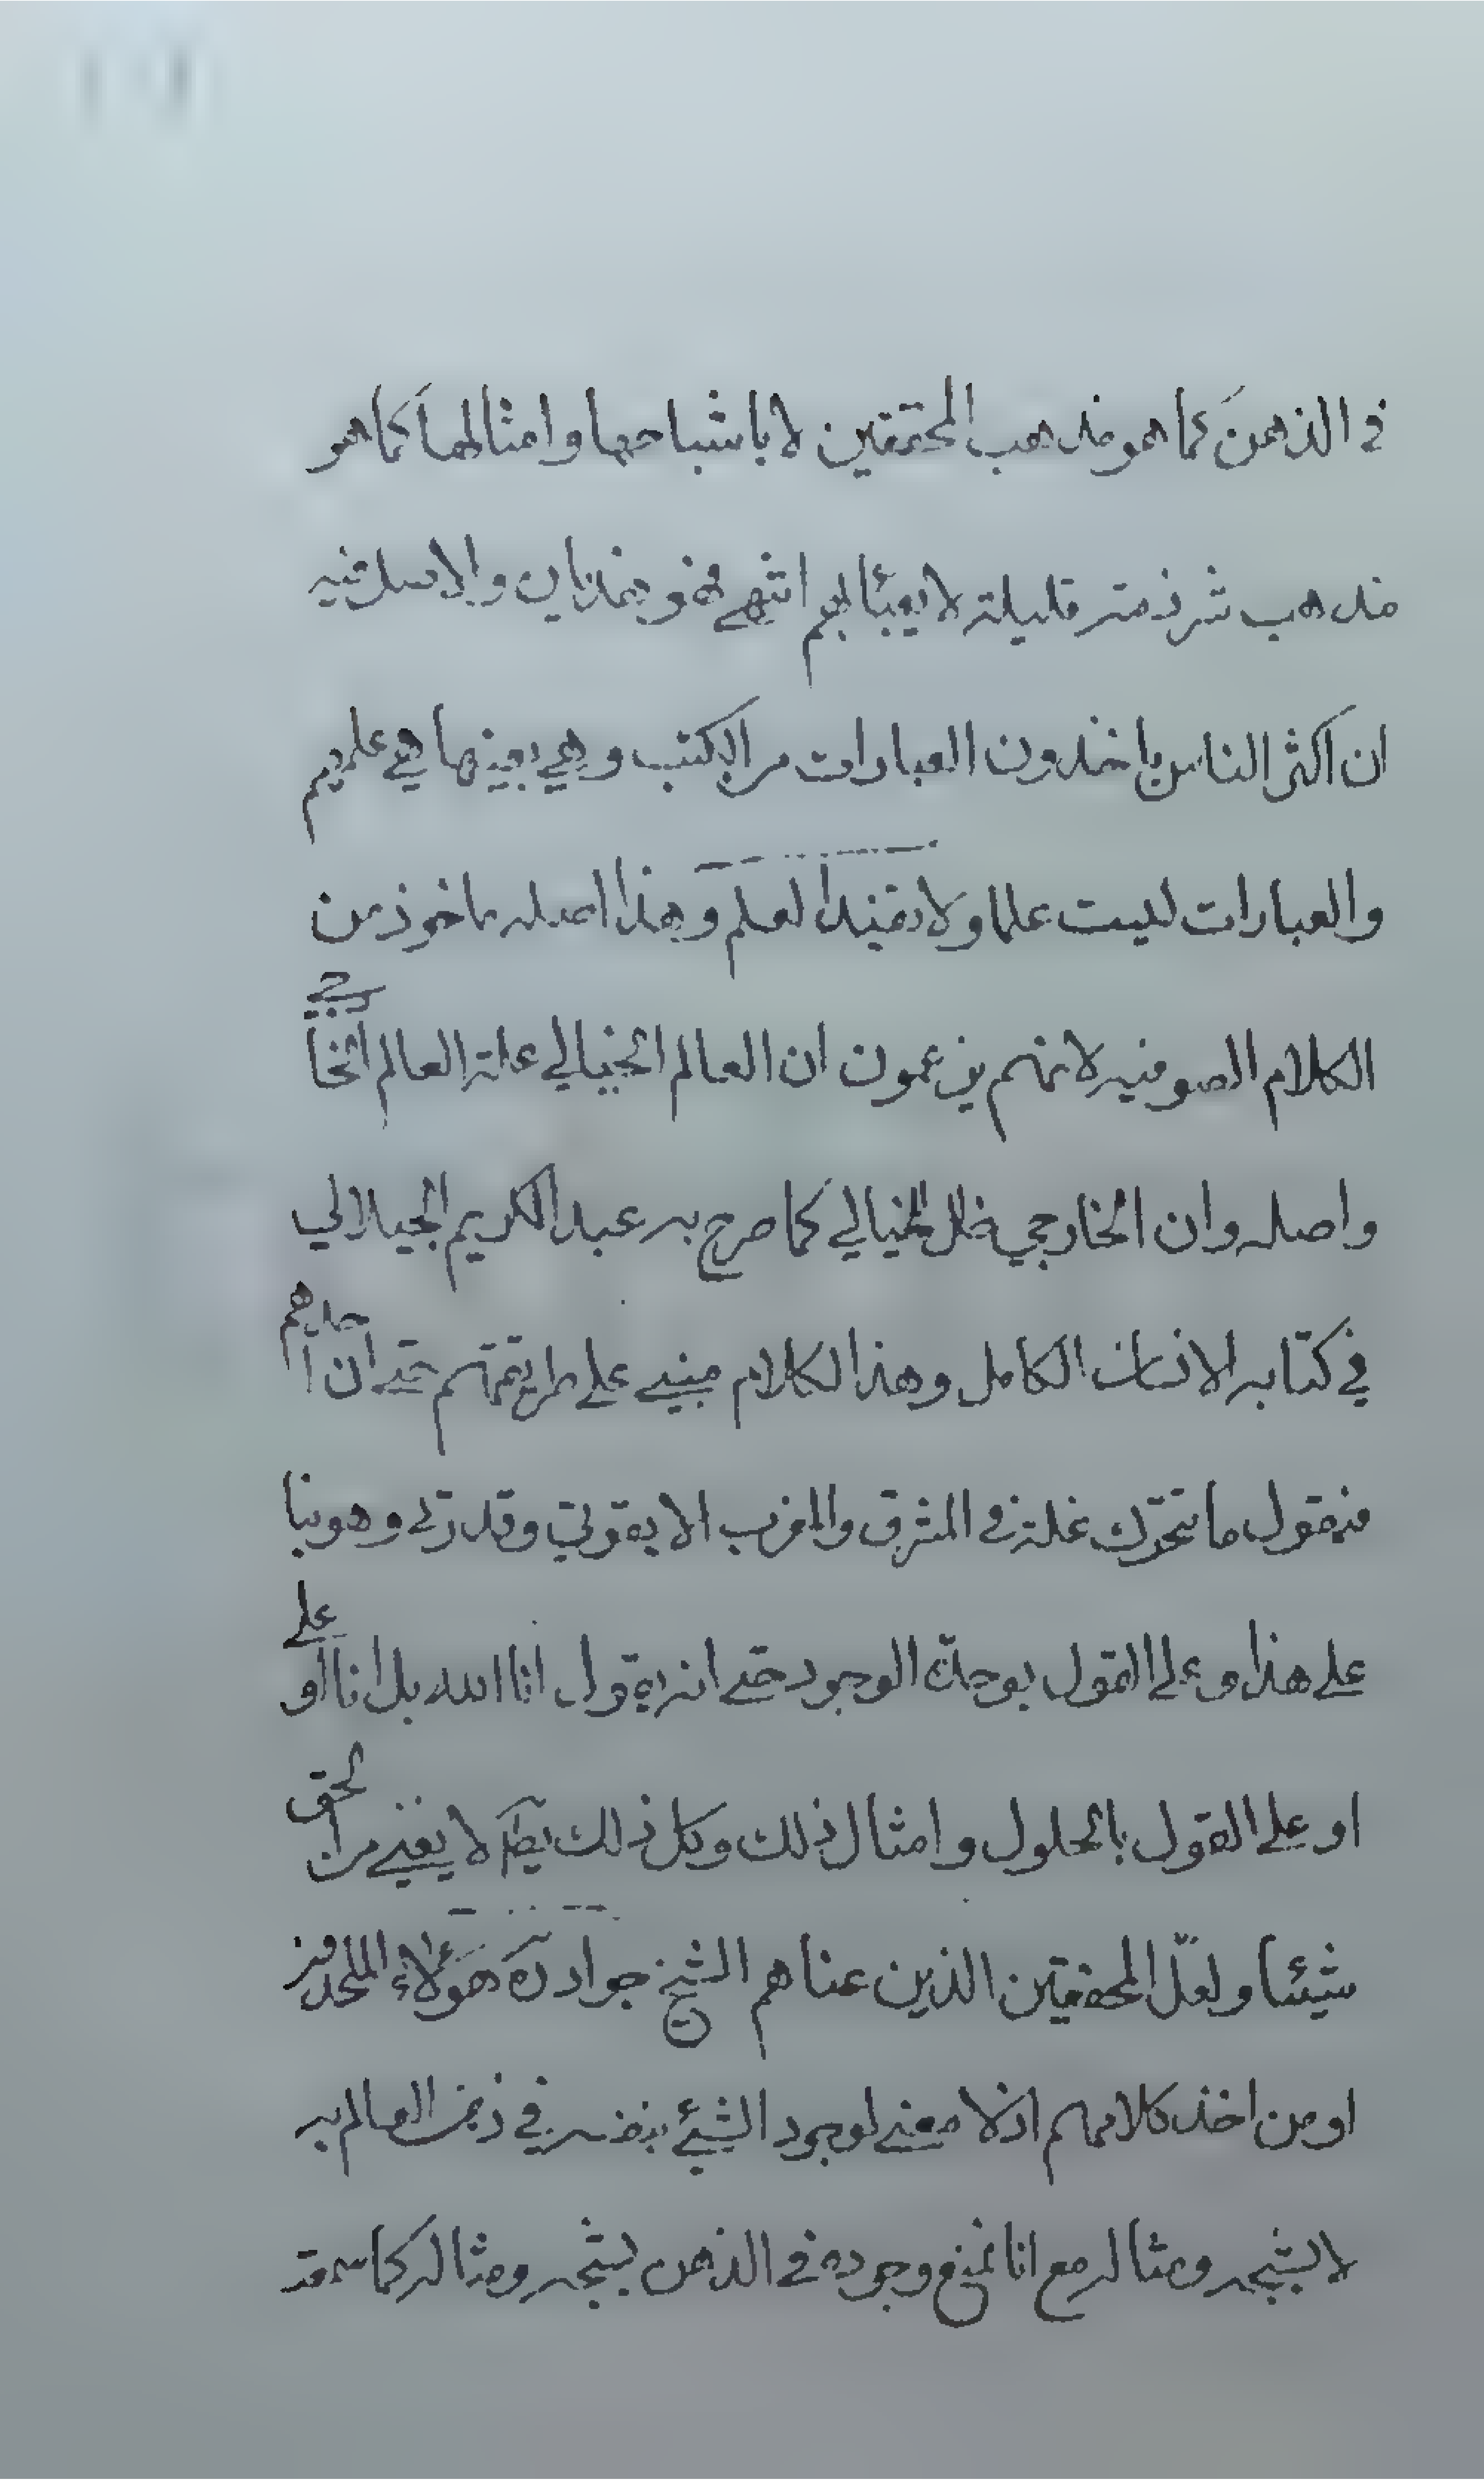 في الذهن كما هو مذهب المحققين لا باشباحها وامثالها كما هو
مذهب شرذمة قليلة لا يعبأ بهم انتهى فهو هذيان والاصل فيه
ان اكثر الناس ياخذون العبارات من الكتب وهي بعينها هي علمهم
والعبارات ليست علما ولا تفيد العلم وهذا اصله ماخوذ من
الكلام الصوفيه لانهم يزعمون ان العالم الخيالي علة العالم الخارجي
واصله وان الخارجي ظل الخيالي كما صرح به عبد الكريم الجيلالي
في كتابه الانسان الكامل وهذا الكلام مبني على طريقتهم حتى ان احدهم
فيقول ما تتحرك نملة في المشرق والمغرب الا بقوتي وقدرتي وهو بنا
على هذا وعلى القول بوحدة الوجود حتى انه يقول انا الله بل انا اقوى على
او على القول بالحلول وامثال ذلك وكل ذلك بط لا يغني من الحق
شيئا ولعلّ المحققين الذين عناهم الشيخ جواد ره هؤلاء الملحدين
او من اخذ كلامهم اذ لا معنى لوجود الشيء بنفسه في ذهن العالم به
لا بشبحه ومثاله مع انا نمنع وجوده في الذهن بشبحه ومثاله كما سمعت